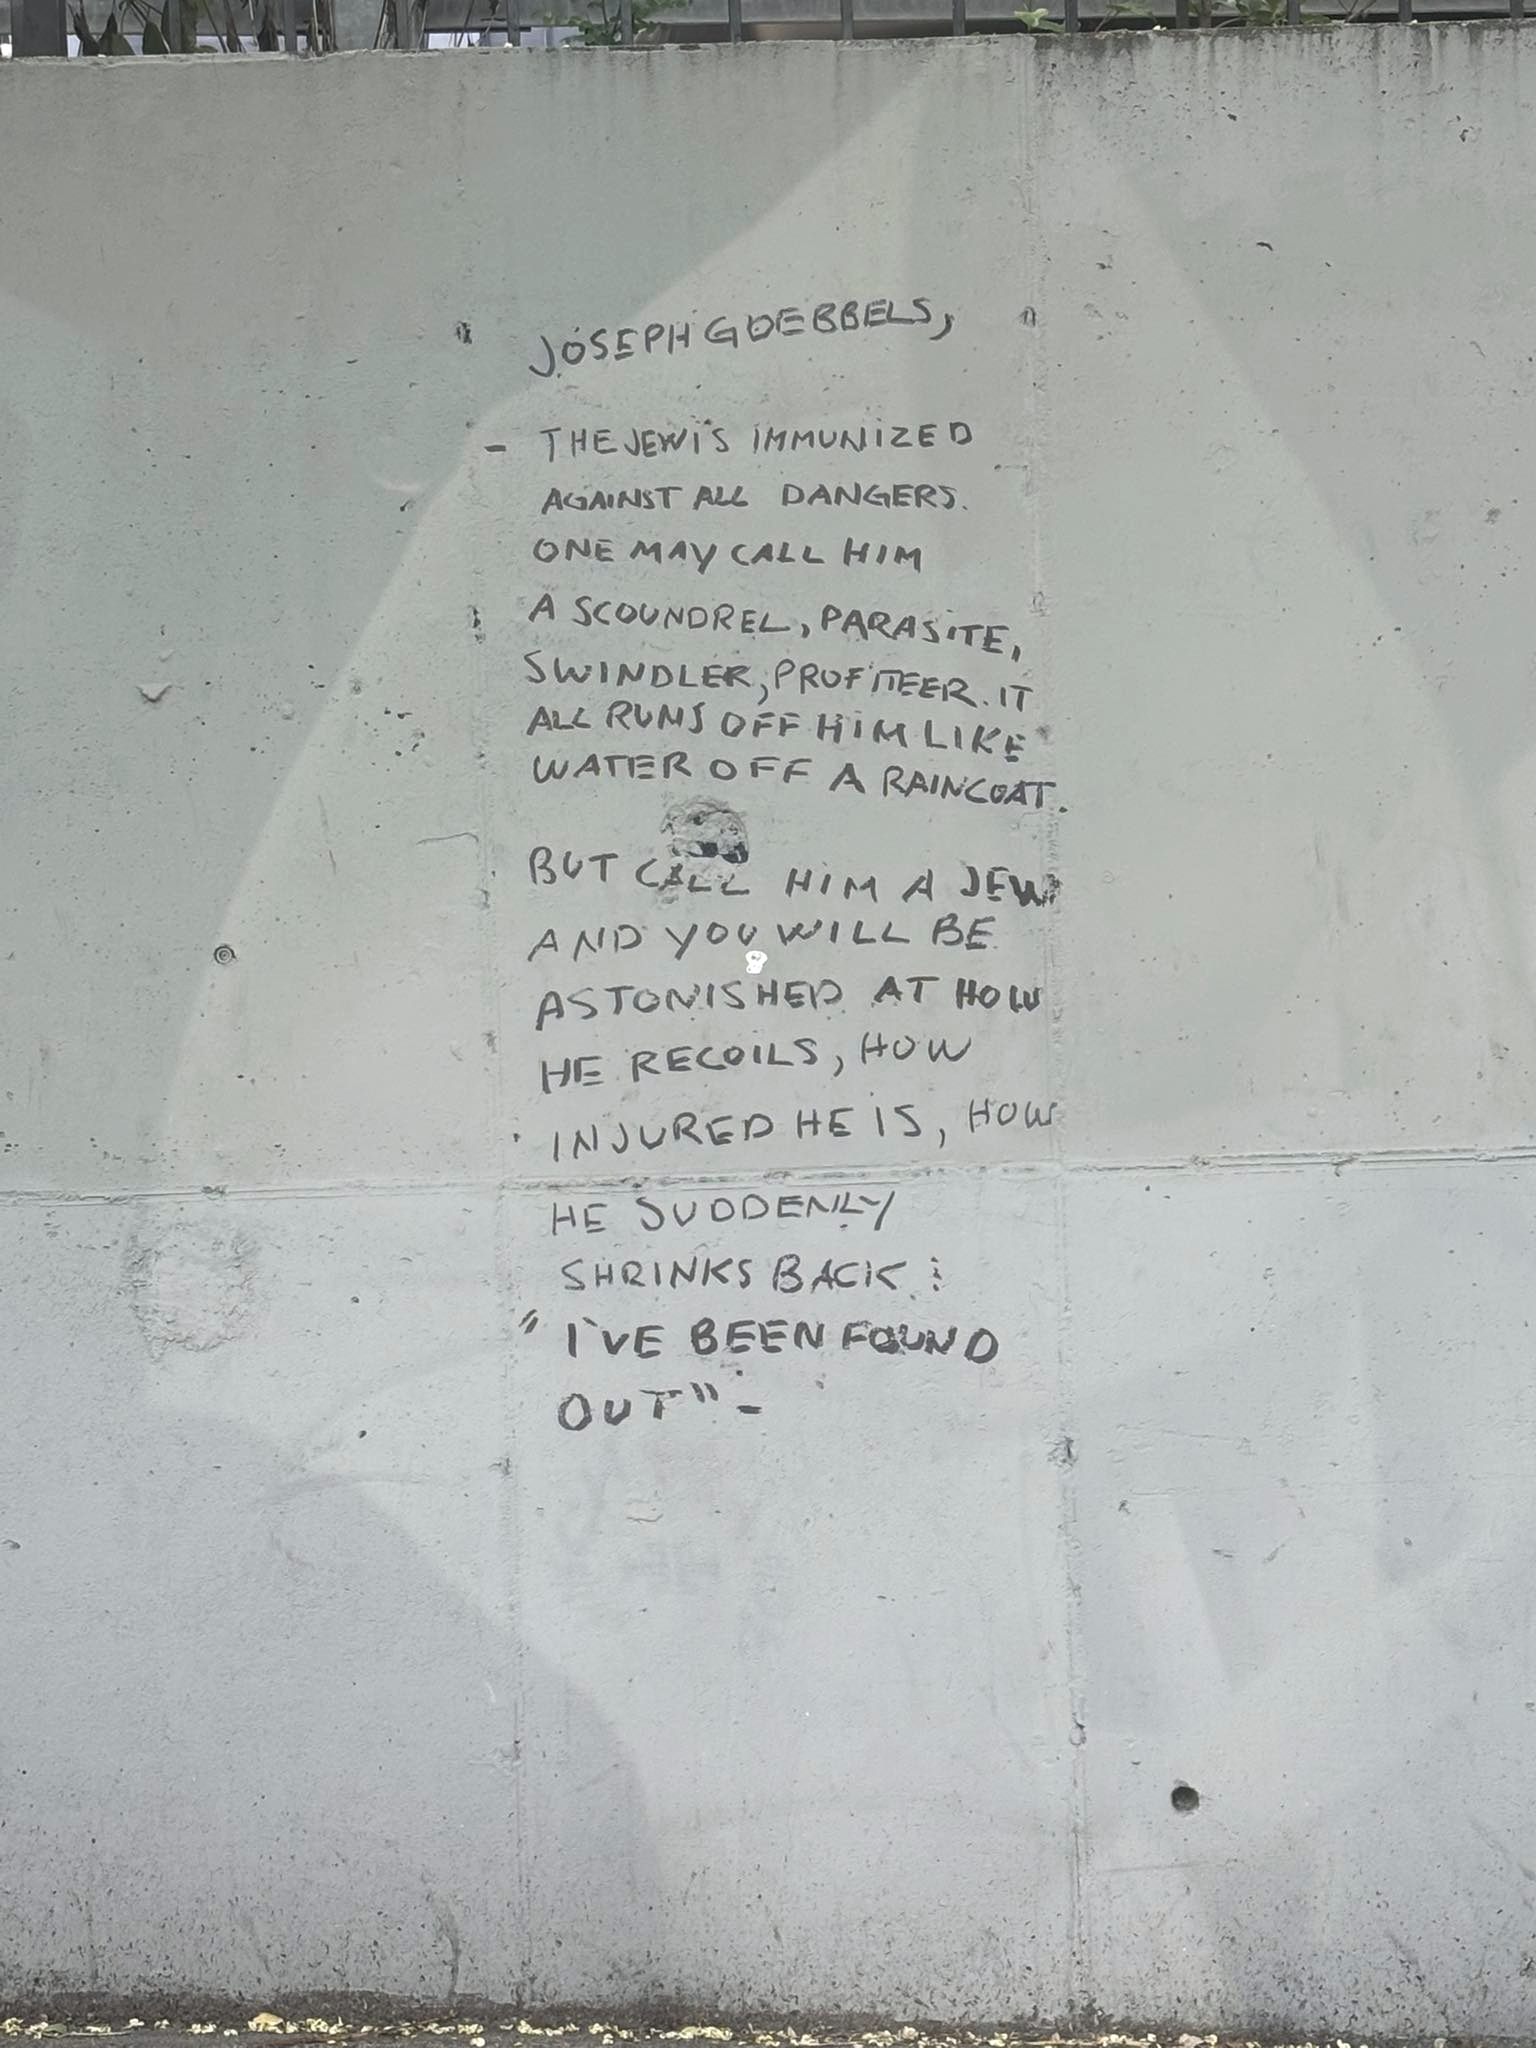 JOSEPH GOEBBELS,
- THE JEW IS IMMUNIZED
AGAINST ALL DANGERS.
ONE MAY CALL HIM
A SCOUNDREL, PARASITE,
SWINDLER, PROFITEER. IT
ALL RUNS OFF HIM LIKE
WATER OFF A RAINCOAT.
BUT CALL HIM A JEW
AND YOU WILL BE
ASTONISHED AT HOW
HE RECOILS, HOW
INJURED HE IS, HOW
HE SUDDENLY
SHRINKS BACK :
"I'VE BEEN FOUND
OUT" -